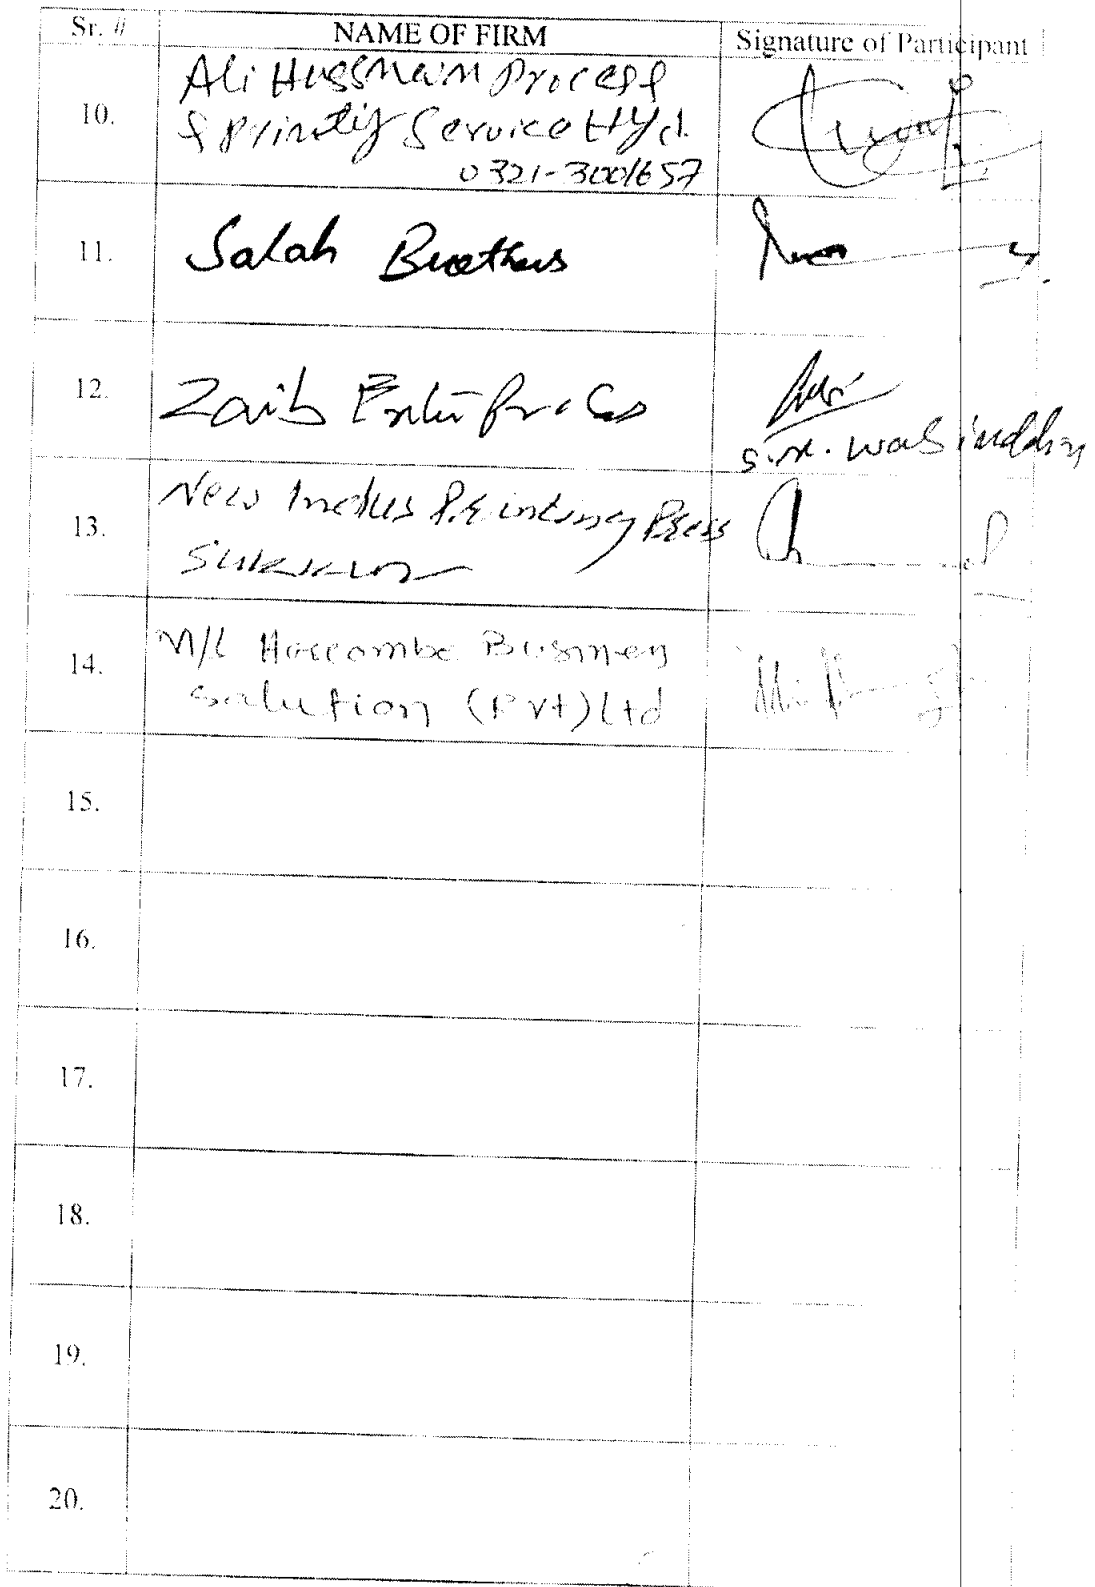 Sr. # NAME OF FIRM Signature of Participant
10. Ali Hussnain Process
& Printig Service Hyd.
0321-3001657
11. Salah Brothers
12. Zaib Enterprices
S.M. Wasimuddin
13. New Indus Printing Press
Sukkur
14. M/S Haccombe Busines
Salution (Pvt) Ltd
15.
16.
17.
18.
19.
20.